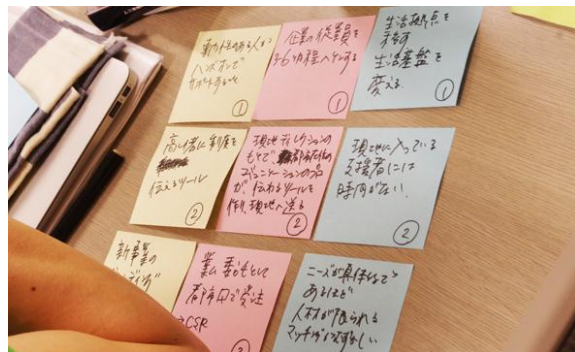 ハンズオンで
サポートすること
①
企業の従業員を
①
生活拠点を
移す
生活基盤を
変える
①
高齢者に制度を
伝えるツール
②
現地ディレクションの
もとで 都市在住の
コミュニケーションのプロ
が、伝わるツールを
作り、現地へ送る
②
現地に入っている
支援者には
時間がない
②
新事業の
業務委託として
都市回で受注
→CSR
③
ニーズが具体的で
あるほど
人材が限られる
マッチングがむずかしい